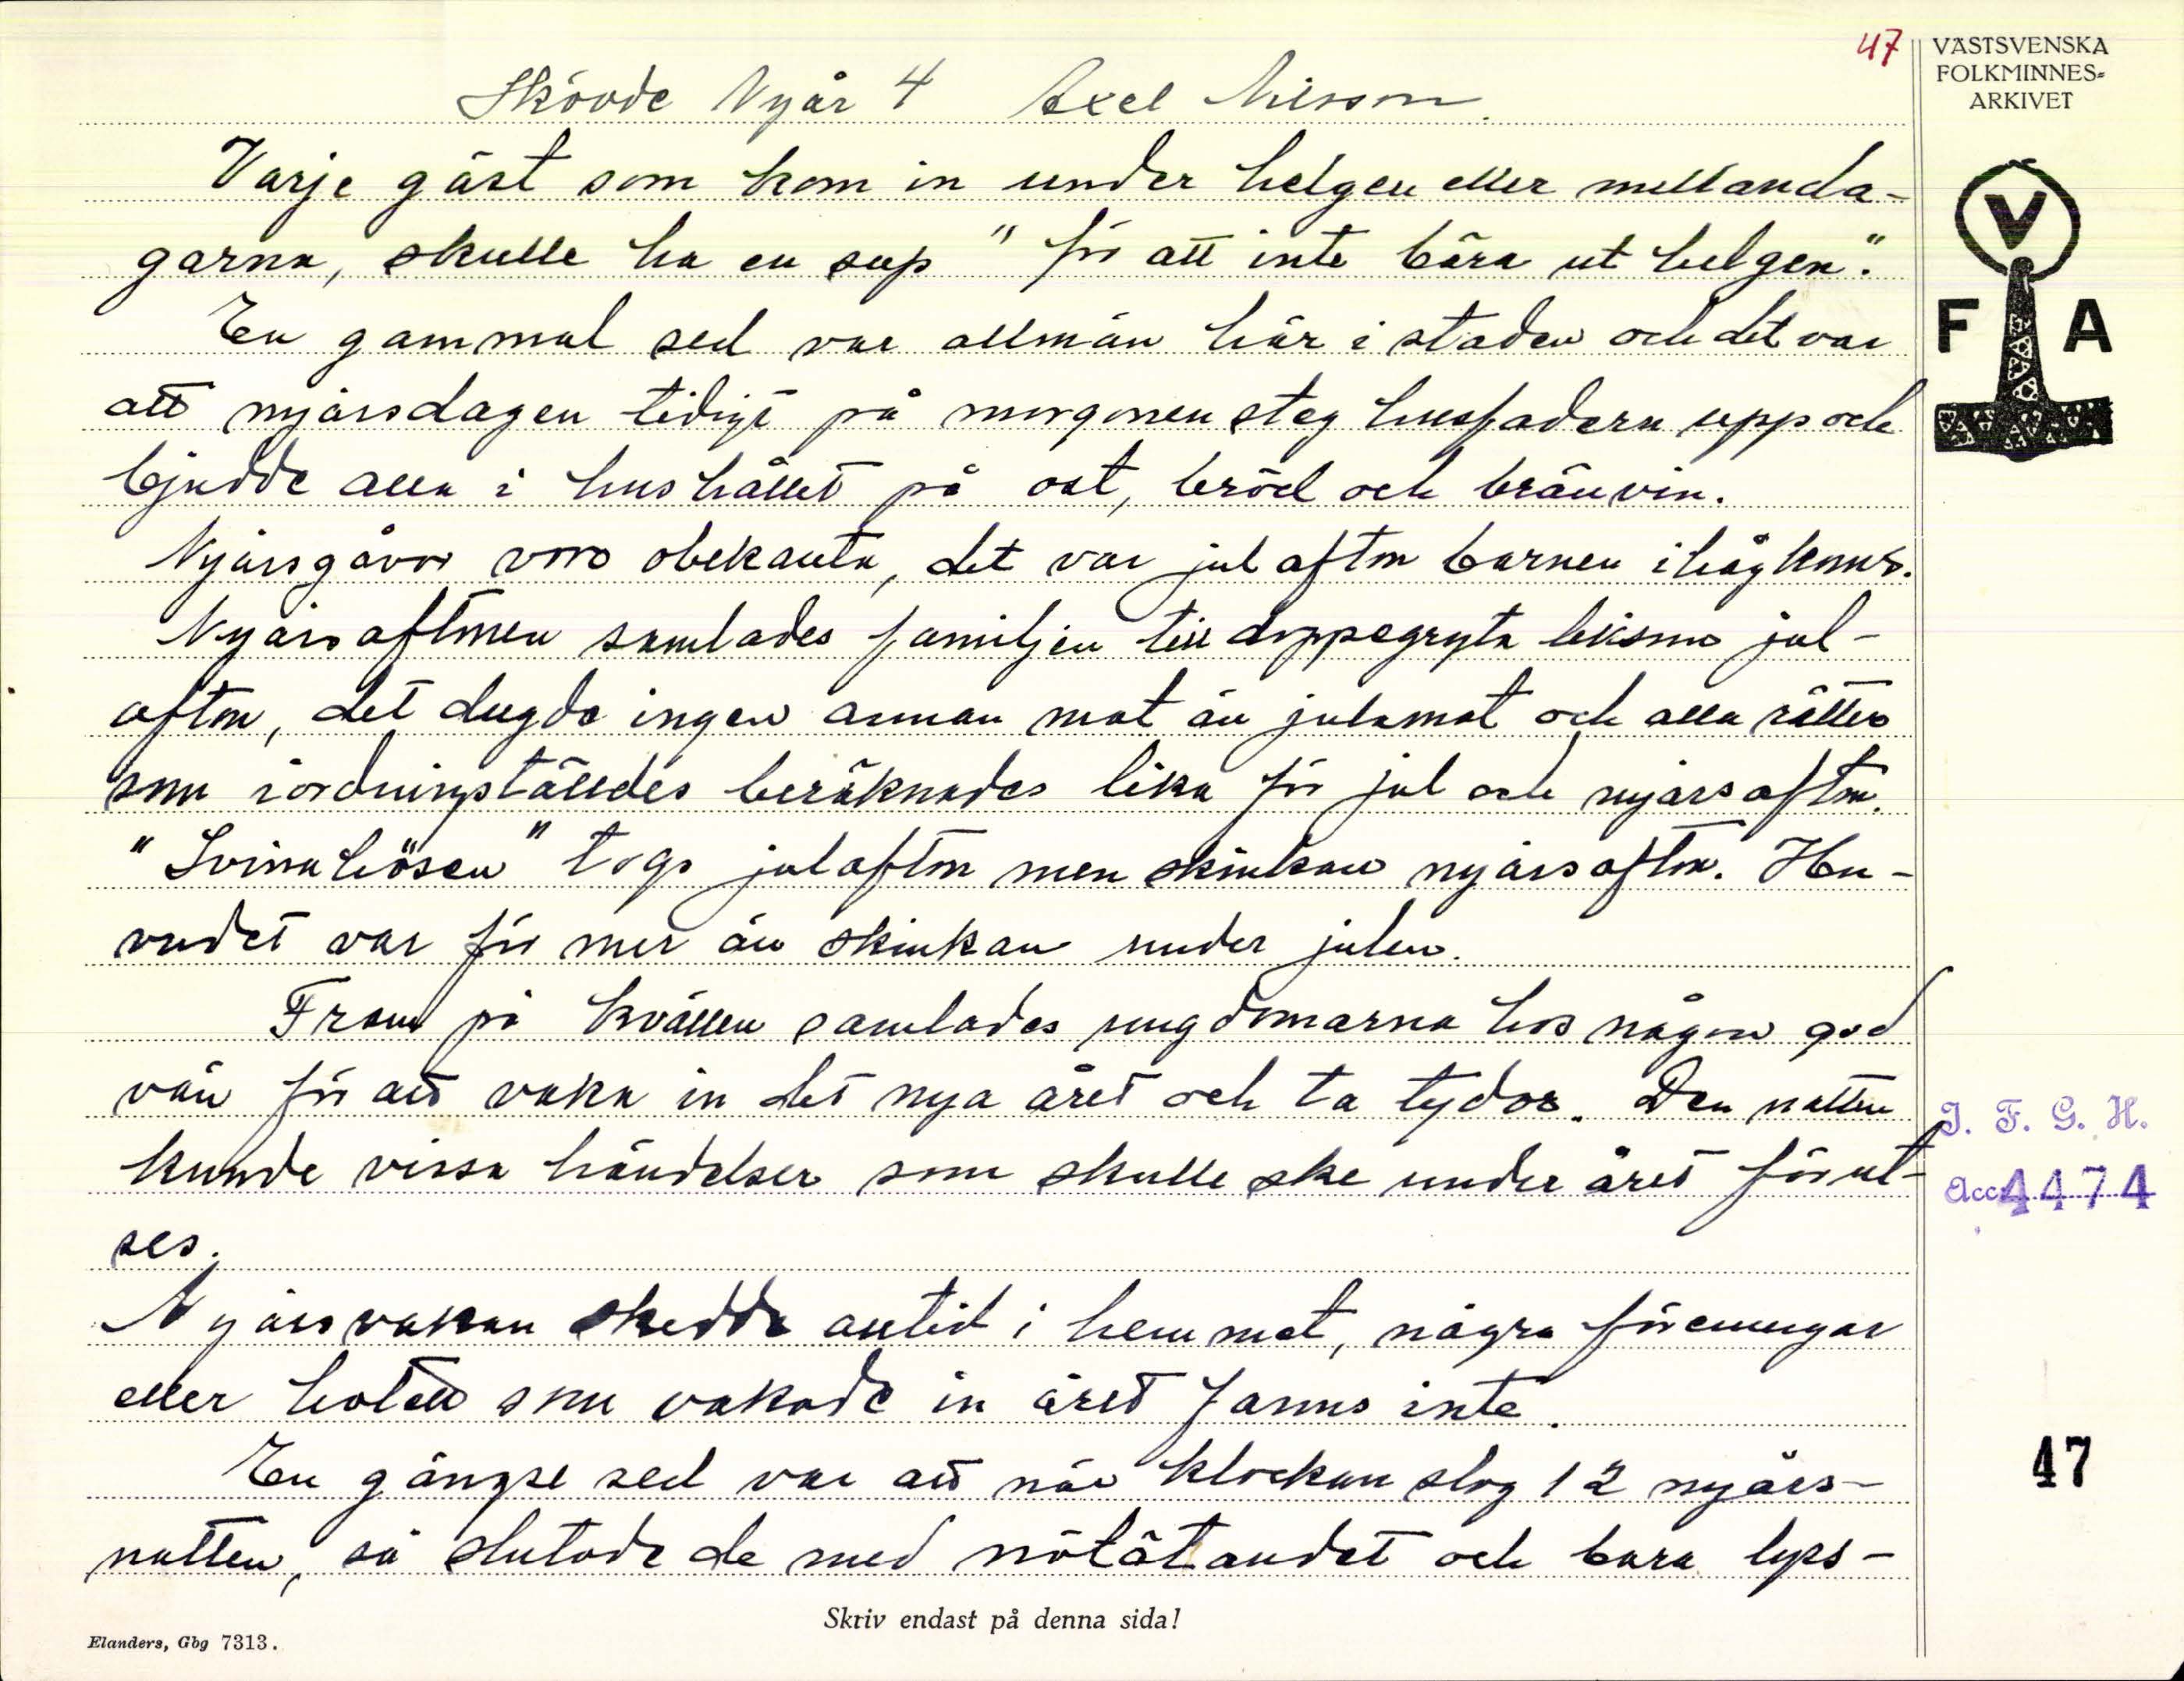 47
VÄSTSVENSKA
FOLKMINNES=
ARKIVET
Skövde Nyår 4 Axel Nilsson.
Varje gäst som kom in under helgen eller mellanda-
garna, skulle ha en sup "för att inte bära ut helgen".
En gammal sed var allmän här i staden och det var
att nyårsdagen tidigt på morgonen steg husfadern upp och
bjudde alla i hushållet på ost, bröd och brännvin.
Nyårsgåvor voro obekanta, det var julafton barnen ihågkoms.
Nyårsaftonen samlades familjen till doppegryta liksom jul-
afton, det dugde ingen annan mat än julamat och alla rätter
som iordningställdes beräknades lika för jul och nyårsafton.
"Svinahösen" togs julafton men skinkan nyårsafton. Hu-
vudet var för mer än skinkan under julen.
Fram på kvällen samlades ungdomarna hos någon god
vän för att vaka in det nya året och ta tydor. Den natten
kunde vissa händelser som skulle ske under året förut-
ses.
Nyårsvakan skedde alltid i hemmet, några föreningar
eller hotell som vakade in året fanns inte.
En gängse sed var att när klockan slog 12 nyårs-
natten, så slutade de med nötätandet och bara lyss-
V
F A
I. F. G. H.
Acc 4474
47
Skriv endast på denna sida!
Elanders, Gbg 7313.